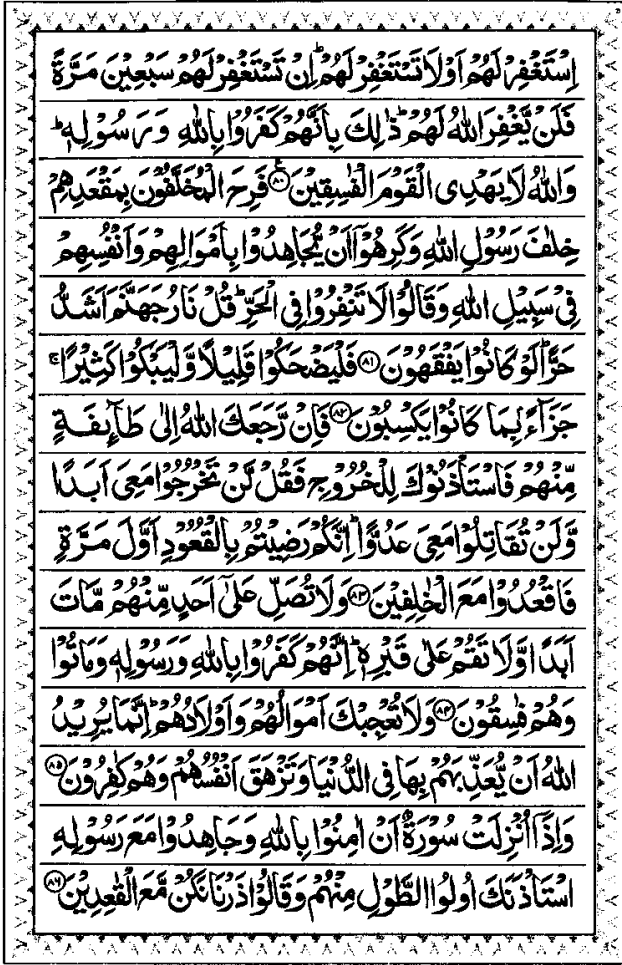 اِسْتَغْفِرْ لَهُمْ اَوْ لَا تَسْتَغْفِرْ لَهُمْ ؕ اِنْ تَسْتَغْفِرْ لَهُمْ سَبْعِیْنَ مَرَّةً
فَلَنْ یَّغْفِرَ اللّٰهُ لَهُمْ ؕ ذٰلِكَ بِاَنَّهُمْ كَفَرُوْا بِاللّٰهِ وَ رَسُوْلِهٖ ؕ
وَاللّٰهُ لَا یَهْدِی الْقَوْمَ الْفٰسِقِیْنَ ﴿۸۰﴾ ع فَرِحَ الْمُخَلَّفُوْنَ بِمَقْعَدِهِمْ
خِلٰفَ رَسُوْلِ اللّٰهِ وَكَرِهُوْۤا اَنْ یُّجَاهِدُوْا بِاَمْوَالِهِمْ وَاَنْفُسِهِمْ
فِیْ سَبِیْلِ اللّٰهِ وَقَالُوْا لَا تَنْفِرُوْا فِی الْحَرِّ ؕ قُلْ نَارُ جَهَنَّمَ اَشَدُّ
حَرًّا ؕ لَوْ كَانُوْا یَفْقَهُوْنَ ﴿۸۱﴾ فَلْیَضْحَكُوْا قَلِیْلًا وَّلْیَبْكُوْا كَثِیْرًا ۚ
جَزَآءًۢ بِمَا كَانُوْا یَكْسِبُوْنَ ﴿۸۲﴾ فَاِنْ رَّجَعَكَ اللّٰهُ اِلٰی طَآىِٕفَةٍ
مِّنْهُمْ فَاسْتَاْذَنُوْكَ لِلْخُرُوْجِ فَقُلْ لَّنْ تَخْرُجُوْا مَعِیَ اَبَدًا
وَّلَنْ تُقَاتِلُوْا مَعِیَ عَدُوًّا ؕ اِنَّكُمْ رَضِیْتُمْ بِالْقُعُوْدِ اَوَّلَ مَرَّةٍ
فَاقْعُدُوْا مَعَ الْخٰلِفِیْنَ ﴿۸۳﴾ وَلَا تُصَلِّ عَلٰۤی اَحَدٍ مِّنْهُمْ مَّاتَ
اَبَدًا وَّلَا تَقُمْ عَلٰی قَبْرِهٖ ؕ اِنَّهُمْ كَفَرُوْا بِاللّٰهِ وَرَسُوْلِهٖ وَمَاتُوْا
وَهُمْ فٰسِقُوْنَ ﴿۸۴﴾ وَلَا تُعْجِبْكَ اَمْوَالُهُمْ وَاَوْلَادُهُمْ ؕ اِنَّمَا یُرِیْدُ
اللّٰهُ اَنْ یُّعَذِّبَهُمْ بِهَا فِی الدُّنْیَا وَتَزْهَقَ اَنْفُسُهُمْ وَهُمْ كٰفِرُوْنَ ﴿۸۵﴾
وَاِذَاۤ اُنْزِلَتْ سُوْرَةٌ اَنْ اٰمِنُوْا بِاللّٰهِ وَجَاهِدُوْا مَعَ رَسُوْلِهِ
اسْتَاْذَنَكَ اُولُوا الطَّوْلِ مِنْهُمْ وَقَالُوْا ذَرْنَا نَكُنْ مَّعَ الْقٰعِدِیْنَ ﴿۸۶﴾